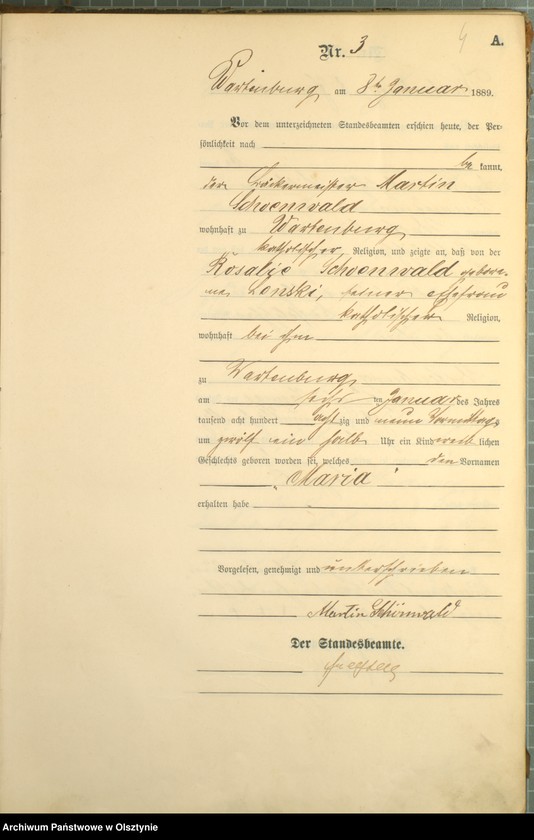 4 A.
Nr. 3
Wartenburg am 8ten Januar 1889.
Vor dem unterzeichneten Standesbeamten erschien heute, der Per-
sönlichkeit nach
be kannt,
der Bäckermeister Martin
Schoenwald
wohnhaft zu Wartenburg
katholischer Religion, und zeigte an, daß von der
Rosalie Schoenwald gebore-
ne Lenski, seiner Ehefrau
katholischer Religion,
wohnhaft bei ihm
zu Wartenburg
am ten Januar des Jahres
tausend acht hundert acht zig und neun Vormittags
um zwölf ein halb Uhr ein Kind weib lichen
Geschlechts geboren worden sei, welches den Vornamen
"Maria"
erhalten habe
Vorgelesen, genehmigt und unterschrieben
Martin Schönwald
Der Standesbeamte.
Archiwum Państwowe w Olsztynie